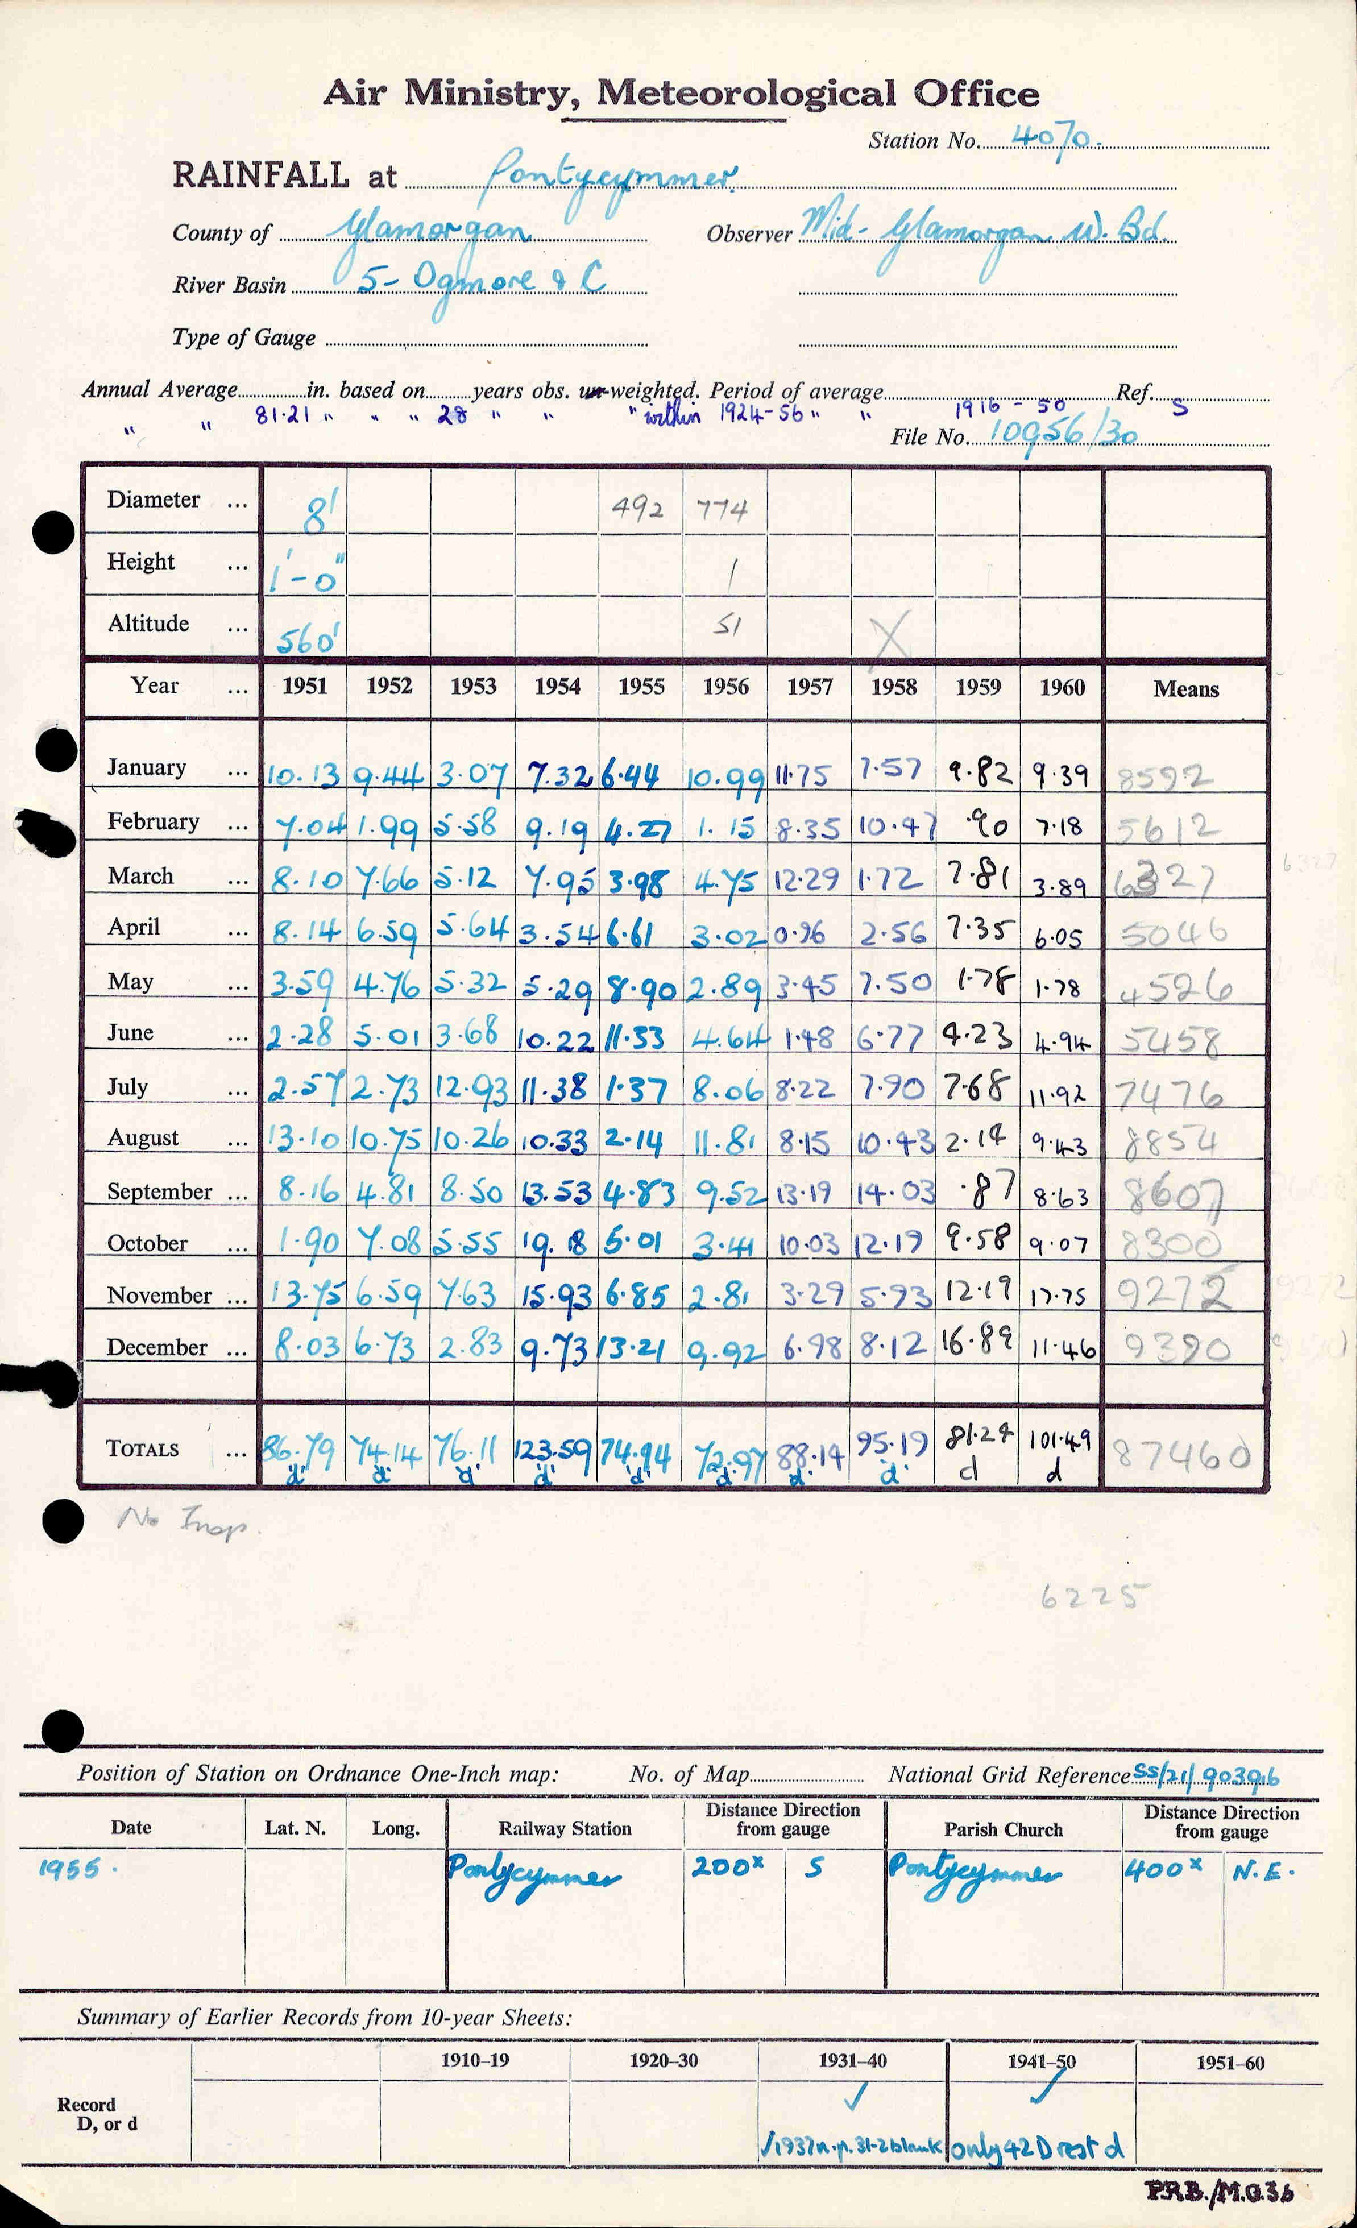 Air Ministry, Meteorological Office
Station No. 4070.
RAINFALL at Pontycymmer.
County of Glamorgan Observer Mid-Glamorgan W. Bd.
River Basin 5- Ogmore & C
Type of Gauge
Annual Average in. based on years obs. un-weighted. Period of average Ref.
" " 81.21 " " " 28 " " " within 1924-56 " " 1916-50 S
File No. 10956/30
Diameter ... 8' 492 774
Height ... 1'-0" 1
Altitude ... 560' 51 X
Year ... 1951 1952 1953 1954 1955 1956 1957 1958 1959 1960 Means
January ... 10.13 9.44 3.07 7.32 6.44 10.99 11.75 7.57 9.82 9.39 8592
February ... 7.04 1.99 5.58 9.19 4.27 1.15 8.35 10.47 .90 7.18 5612
March ... 8.10 7.66 5.12 7.95 3.98 4.75 12.29 1.72 7.81 3.89 6327 6327
April ... 8.14 6.59 5.64 3.54 6.61 3.02 0.96 2.56 7.35 6.05 5046
May ... 3.59 4.76 5.32 5.29 8.90 2.89 3.45 7.50 1.78 1.78 4526
June ... 2.28 5.01 3.68 10.22 11.33 4.64 1.48 6.77 4.23 4.94 5458
July ... 2.57 2.73 12.93 11.38 1.37 8.06 8.22 7.90 7.68 11.92 7476
August ... 13.10 10.75 10.26 10.33 2.14 11.81 8.15 10.43 2.14 9.43 8854
September ... 8.16 4.81 8.50 13.53 4.83 9.52 13.19 14.03 .87 8.63 8607
October ... 1.90 7.08 5.55 19.18 5.01 3.41 10.03 12.19 9.58 9.07 8300
November ... 13.75 6.59 7.63 15.93 6.85 2.81 3.29 5.93 12.19 17.75 9272 9272
December ... 8.03 6.73 2.83 9.73 13.21 9.92 6.98 8.12 16.89 11.46 9390
TOTALS ... 86.79 74.14 76.11 123.59 74.94 72.97 88.14 95.19 81.24 101.49 87460
d d d d d d d d d d
No Insp.
6225
Position of Station on Ordnance One-Inch map: No. of Map National Grid Reference SS/21/903916
Date Lat. N. Long. Railway Station Distance Direction from gauge Parish Church Distance Direction from gauge
1955. Pontycymmer 200x S Pontycymmer 400x N.E.
Summary of Earlier Records from 10-year Sheets:
1910–19 1920–30 1931–40 1941–50 1951–60
Record
D, or d
✓ ✓
/1937 n.p. 31-2 blank only 42 D rest d
P.R.B./M.O.36